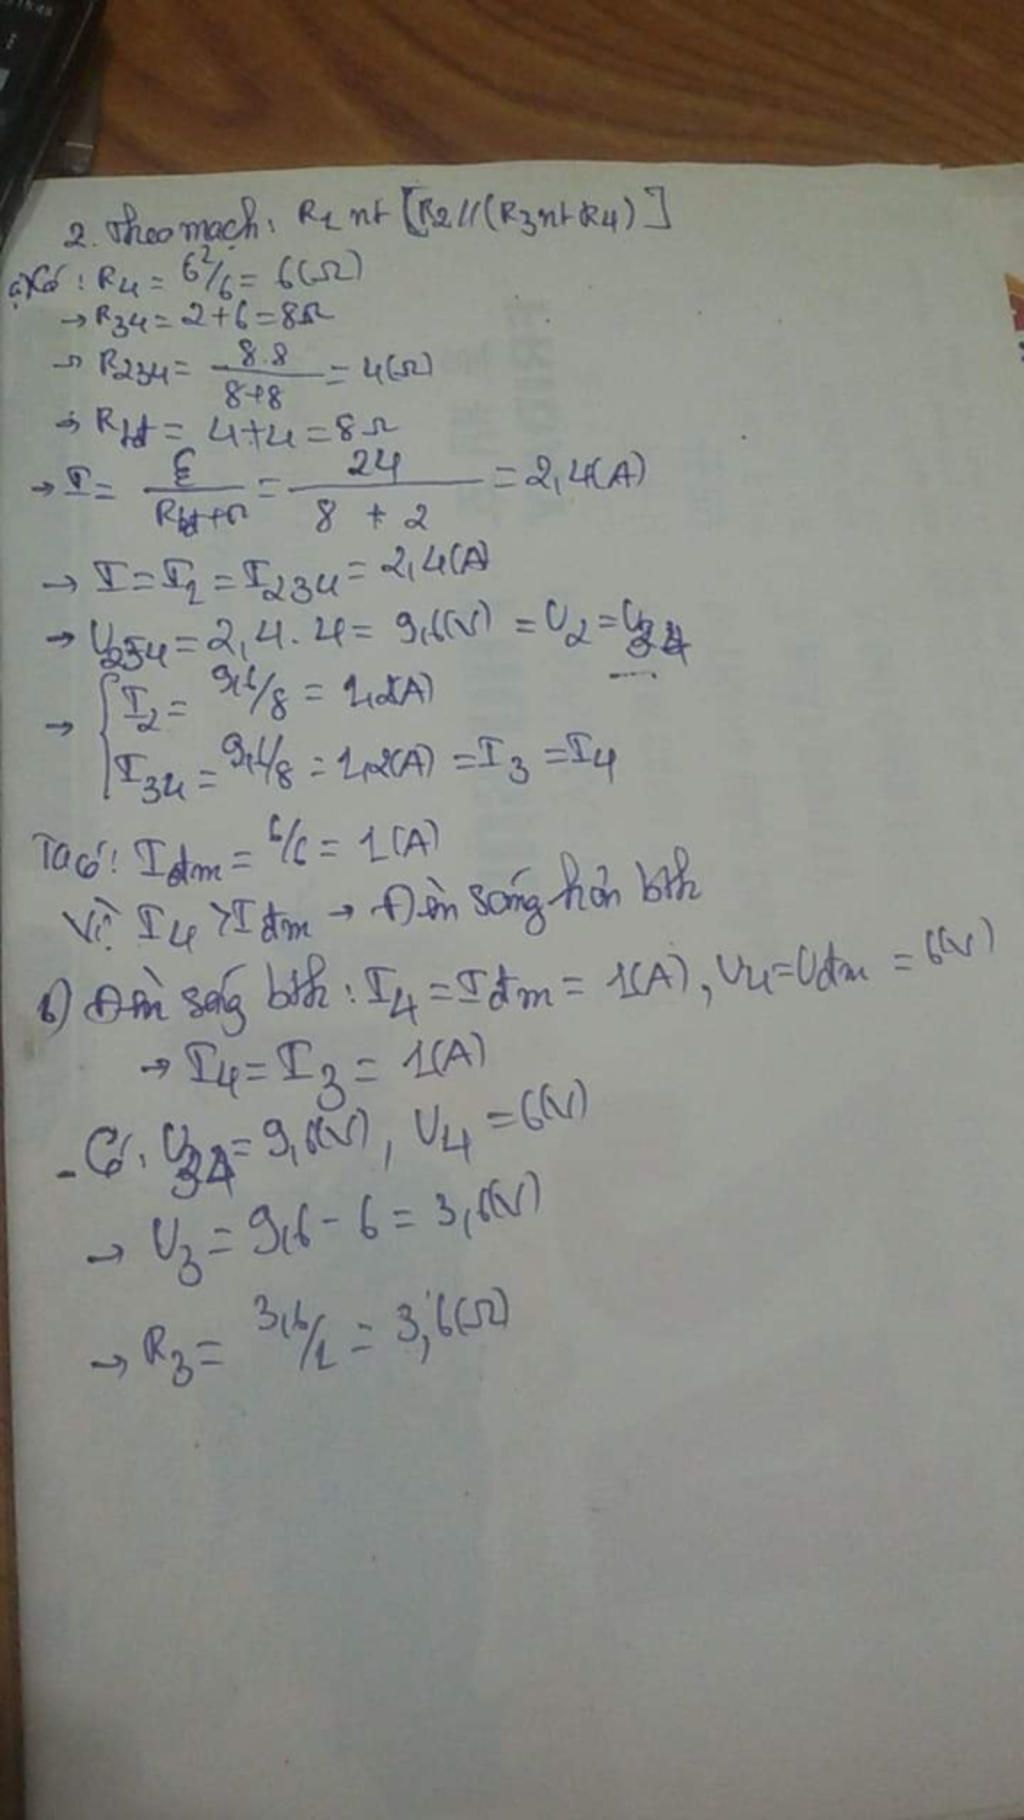 2. Theo mạch: R1 nt [R2//(R3 nt R4)]
a) Có: R4 = 6²/6 = 6(Ω)
→ R34 = 2+6 = 8Ω
→ R234 = 8.8/8+8 = 4(Ω)
→ Rtđ = 4+4 = 8Ω
→ I = ξ/Rtđ+r = 24/8 + 2 = 2,4(A)
→ I = I1 = I234 = 2,4(A)
→ U234 = 2,4.4 = 9,6(V) = U2 = U34
→ { I2 = 9,6/8 = 1,2(A)
I34 = 9,6/8 = 1,2(A) = I3 = I4
Ta có: Iđm = 6/6 = 1(A)
Vì I4 > Iđm → Đèn sáng hơn bth
b) Đèn sáng bth: I4 = Iđm = 1(A), U4 = Uđm = 6(V)
→ I4 = I3 = 1(A)
- Có: U34 = 9,6(V), U4 = 6(V)
→ U3 = 9,6 - 6 = 3,6(V)
→ R3 = 3,6/1 = 3,6(Ω)